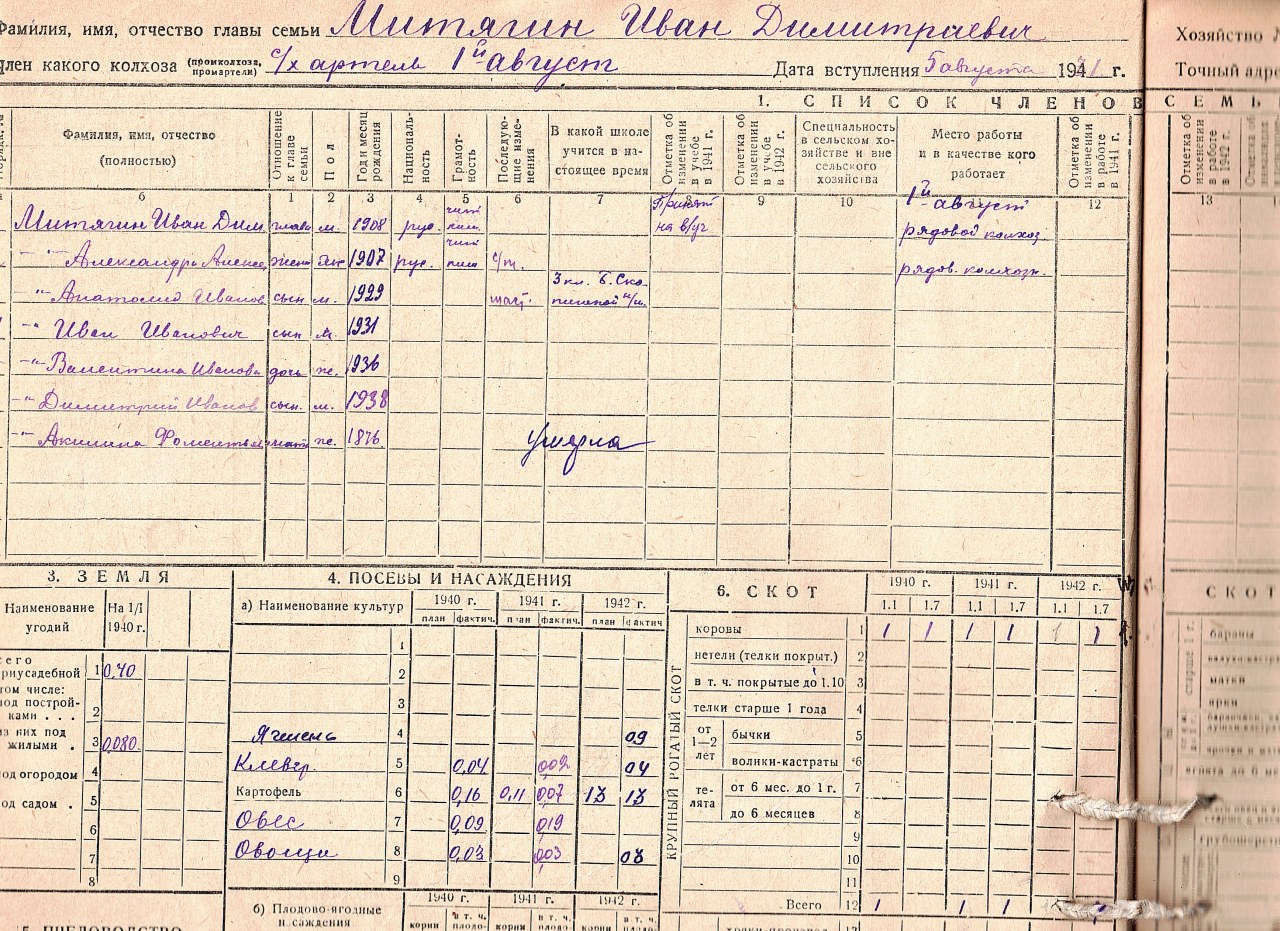 Фамилия, имя, отчество главы семьи Митягин Иван Димитриевич
член какого колхоза (промколхоза, промартели) с/х артель 1й август Дата вступления 5 августа 1941 г.
Хозяйство
Точный адре
1. СПИСОК ЧЛЕНОВ СЕМЬ
Фамилия, имя, отчество (полностью) Отношение к главе семьи Пол Год и месяц рождения Националь-ность Грамот-ность Последую-щие изме-нения В какой школе учится в на-стоящее время Отметка об изменении в учебе в 1941 г. Отметка об изменении в учебе в 1942 г. Специальность в сельском хо-зяйстве и вне сельского хозяйства Место работы и в качестве кого работает Отметка об изменении в работе в 1941 г. Отметка об изменении в работе в 1942 г.
б 1 2 3 4 5 6 7 9 10 12 13
Митягин Иван Дим. глава м. 1908 рус. чит. пис. Принят на в/уч 1й август рядовой колхоз.
-"- Александра Алексе. жена жен 1907 рус. чит пис рядов. колхозн.
-"- Анатолий Иванов сын м. 1929 3 кл.
-"- Иван Иванович сын м. 1931
-"- Валентина Иванова дочь же. 1936
-"- Димитрий Иванов сын. м. 1938
-"- Акилина мать же. 1876 умерла
3. ЗЕМЛЯ
Наименование угодий На 1/I 1940 г.
риусадебной 1 0,40
том числе:
под построй-ками . . . 2
из них под жилыми . 3 0,080
под огородом 4
под садом . 5
6
7
8
4. ПОСЕВЫ И НАСАЖДЕНИЯ
а) Наименование культур 1940 г. 1941 г. 1942 г.
план фактич. план фактич. план фактич
1
2
3
Ячмень 4 09
Клевер. 5 0,04 002 04
Картофель 6 0,16 0,11 0,07 13 13
Овес 7 0,09 019
Овощи 8 0,03 003 08
9
б) Плодово-ягодные насаждения 1940 г. 1941 г. 1942 г.
корни в т. ч. плодо- корни в т. ч. плодо- корни в т. ч. плодо-
6. СКОТ 1940 г. 1941 г. 1942 г.
1.1 1.7 1.1 1.7 1.1 1.7
КРУПНЫЙ РОГАТЫЙ СКОТ
коровы 1 1 1 1 1 1 1
нетели (телки покрыт.) 2
в т. ч. покрытые до 1.10 3
телки старше 1 года 4
от 1—2 лет бычки 5
волики-кастраты 6
те-лята от 6 мес. до 1 г. 7
до 6 месяцев 8
9
10
11
Всего 12 1 1 1
СКОТ
старше 1 г.
бараны
матки
ярки
5. ПЧЕЛОВОДСТВО